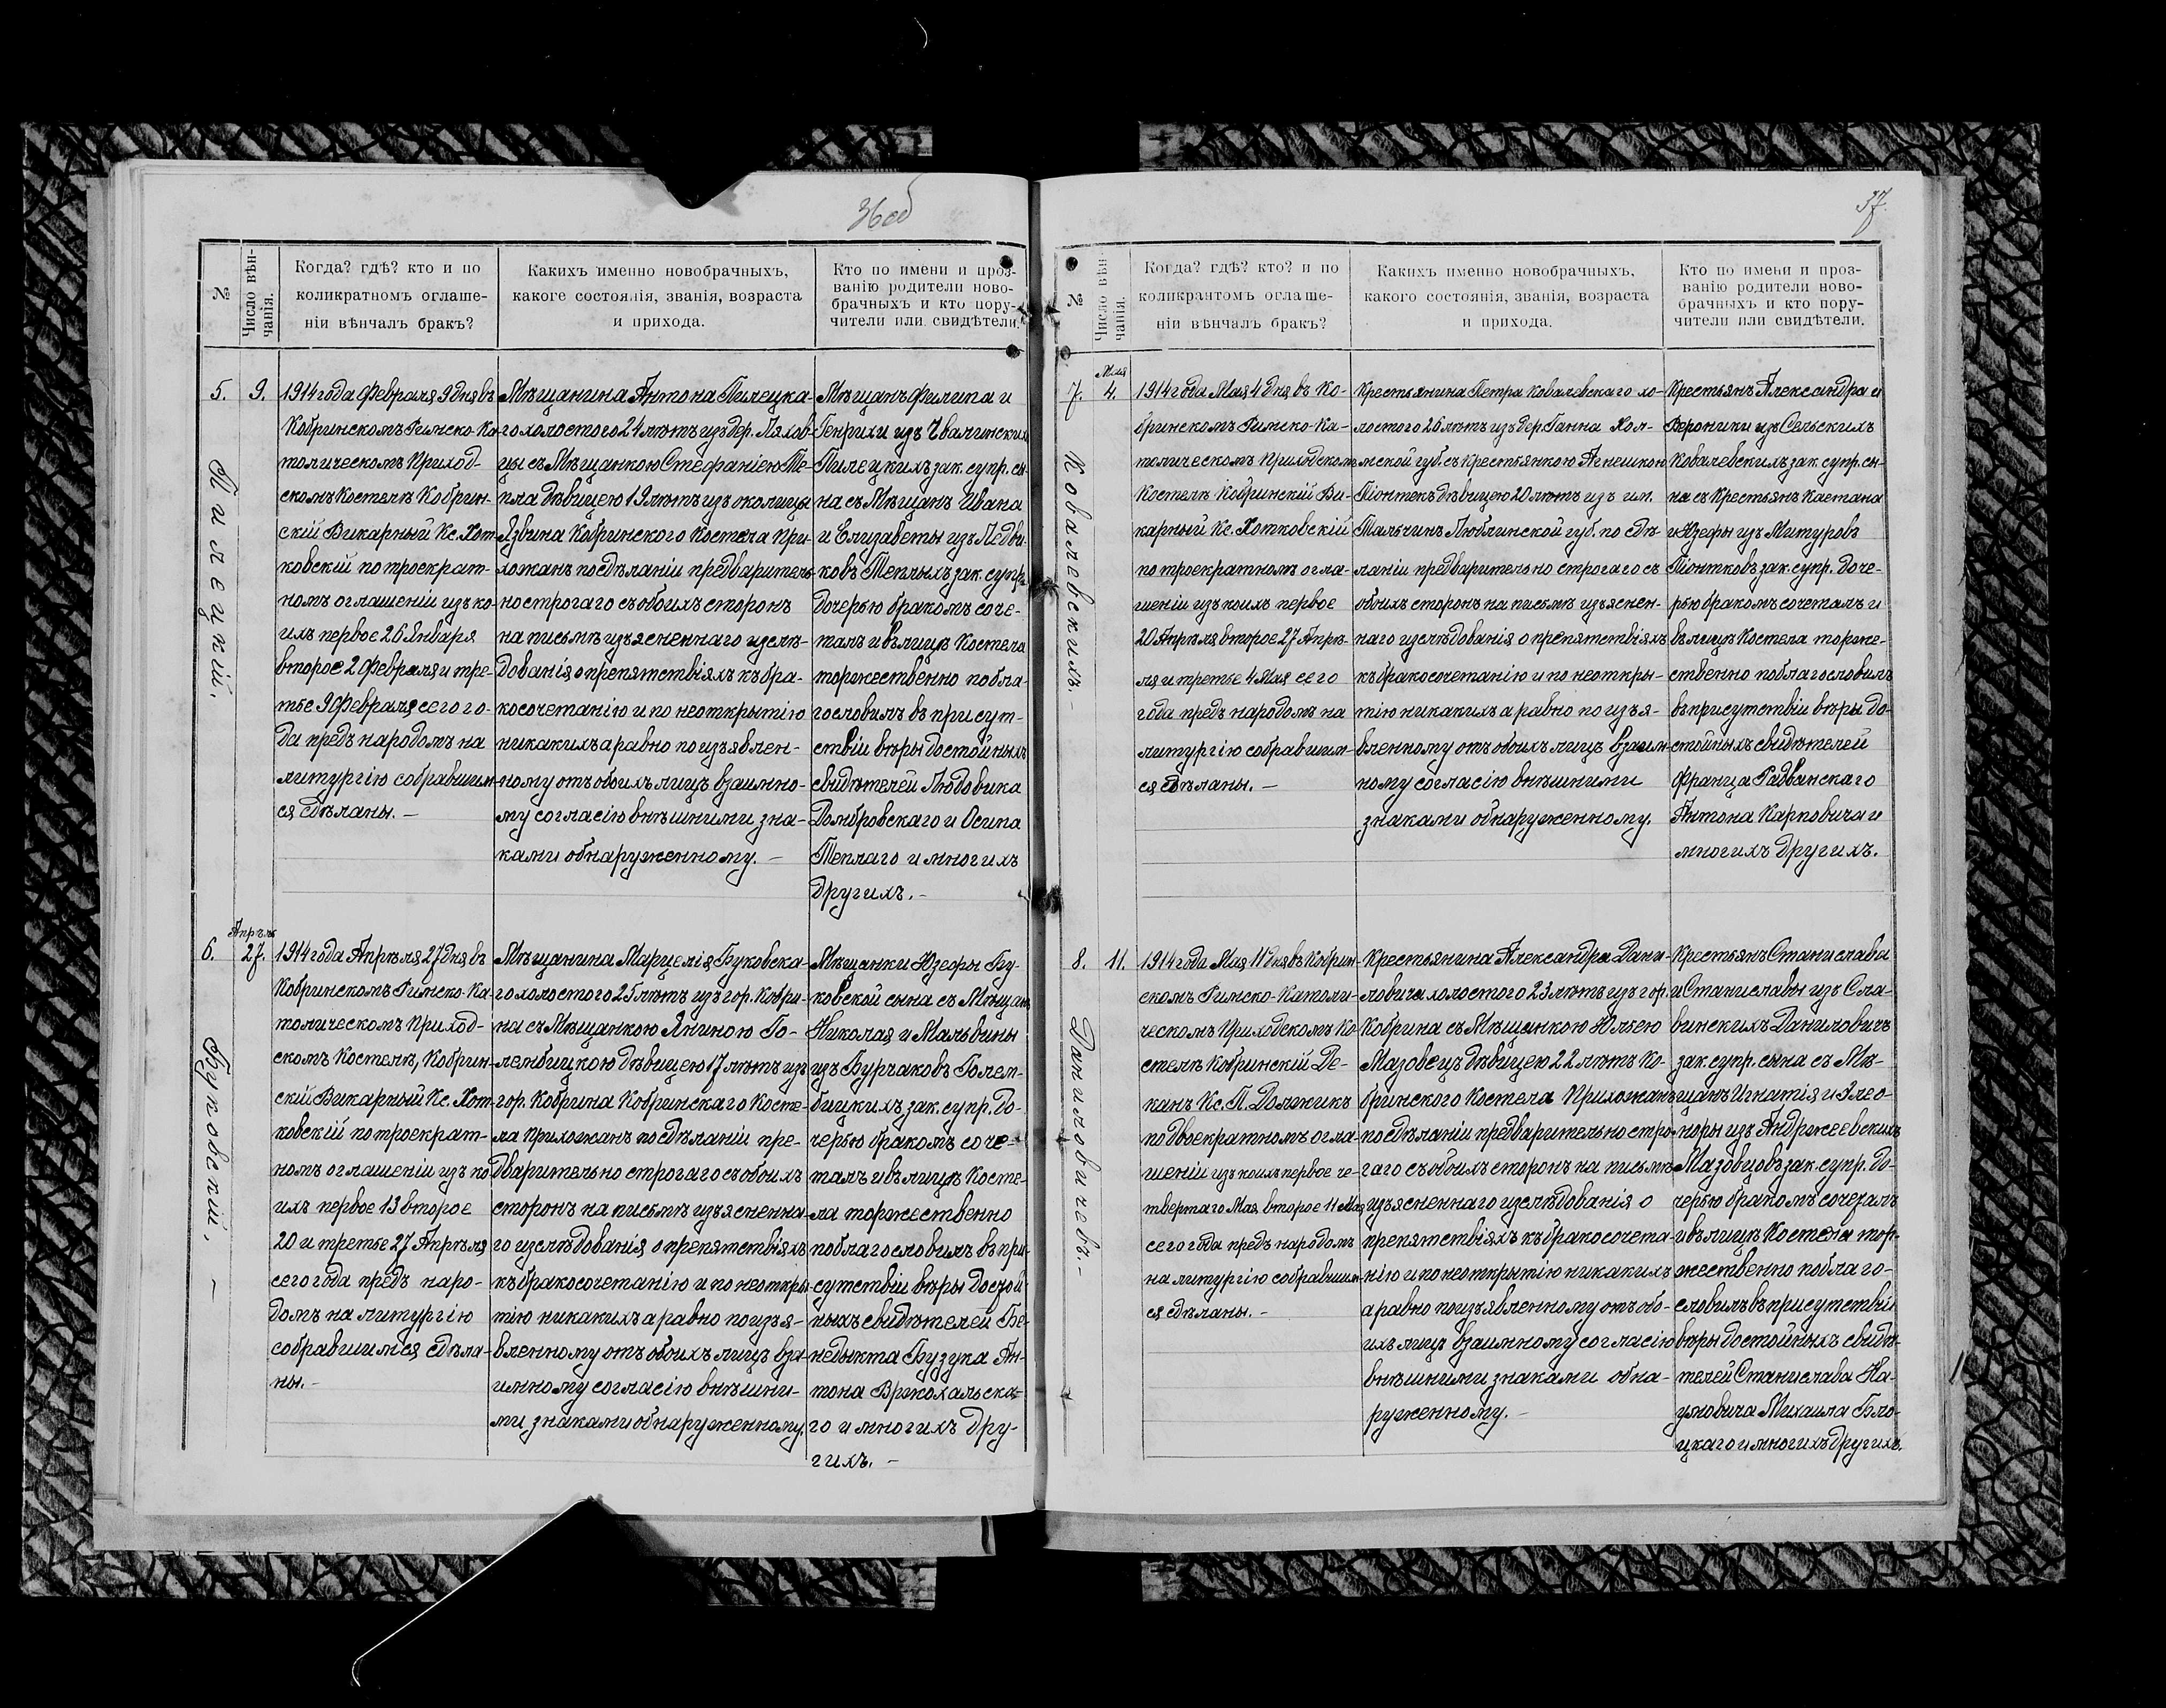 36 об
№
Число вѣн-
чанія.
Когда? гдѣ? кто и по
коликратномъ оглаше-
ніи вѣнчалъ бракъ?
Какихъ именно новобрачныхъ,
какоге состоянія, званія, возраста
и прихода.
Кто по имени и проз-
ванію родители ново-
брачныхъ и кто пору-
чители или свидѣтели.
5.
9.
Пилецкій.
1914 года Февраля 9 дня въ
Кобринскомъ Римско-Ка-
толическомъ Приход-
скомъ Костелѣ Кобрин-
скій Викарный Кс. Хот-
ковскій по троекрат-
номъ оглашеніи изъ ко-
ихъ первое 26 Января
второе 2 Февраля и тре-
тье 9 Февраля сего го-
да предъ народомъ на
литургію собравшим-
ся сдѣланы. —
Мѣщанина Антона Пилецка-
го холостого 24 лѣтъ изъ дер. Ляхов-
цы съ Мѣщанкою Стефаніею Те-
пла дѣвицею 19 лѣтъ изъ околицы
Язвина Кобринского Костела При-
хожанъ по сдѣланіи предваритель-
но строгаго съ обоихъ сторонъ
на письмѣ изъясненнаго изслѣ-
дованія о препятствіяхъ къ бра-
косочетанію и по неоткрытію
никакихъ а равно по изъявлен-
ному отъ обоихъ лицъ взаимно-
му согласію внѣшними зна-
ками обнаруженному. —
Мѣщанъ Филипа и
Генрихи изъ Чвалинскихъ
Пилецкихъ зак. супр. сы-
на съ Мѣщанъ Ивана
и Елизаветы изъ Ледви-
ковъ Теплыхъ зак. супр.
дочерью бракомъ соче-
талъ и въ лицѣ Костела
торжественно побла-
гословилъ въ присут-
ствіи вѣры достойныхъ
свидѣтелей Людовика
Домбровскаго и Осипа
Теплаго и многихъ
другихъ. —
6.
Апрѣль
27.
Буковскій. —
1914 года Апрѣля 27 дня въ
Кобринскомъ Римско-Ка-
толическомъ Приход-
скомъ Костелѣ, Кобрин-
скій Викарный Кс. Хот-
ковскій по троекрат-
номъ оглашеніи изъ ко
ихъ первое 13 второе
20 и третье 27 Апрѣля
сего года предъ наро-
домъ на литургію
собравшимся сдѣла-
ны. —
Мѣщанина Марцелія Буковска-
го холостого 25 лѣтъ изъ гор. Кобри-
на съ Мѣщанкою Яниною Го-
лембицкою дѣвицею 17 лѣтъ изъ
гор. Кобрина Кобринскаго Косте-
ла Прихожанъ по сдѣланіи пре-
дварительно строгаго съ обоихъ
сторонъ на письмѣ изъясненна-
го изслѣдованія о препятствіяхъ
къ бракосочетанію и по неоткры-
тію никакихъ а равно по изъя-
вленному отъ обоихъ лицъ вза-
имному согласію внѣшни-
ми знаками обнаруженному.
Мѣщанки Юзефы Бу-
ковской сына съ Мѣщанъ
Николая и Мальвины
изъ Бурчаковъ Голем-
бицкихъ зак. супр. до-
черью бракомъ соче-
талъ и въ лицѣ Косте-
ла торжественно
поблагословилъ въ при-
сутствіи вѣры достой
ныхъ свидѣтелей Бе-
недыкта Бузука Ан-
тона Вржохальска-
го и многихъ дру-
гихъ. —
37.
№
Число вѣн-
чанія.
Когда? гдѣ? кто? и по
коликрантомъ оглаше-
ніи вѣнчалъ бракъ?
Какихъ именно новобрачныхъ,
какого состоянія, званія, возраста
и прихода.
Кто по имени и проз-
ванію родители ново-
брачныхъ и кто пору-
чители или свидѣтели.
7.
Мая
4.
Ковалевскихъ. —
1914 года Мая 4 дня въ Ко-
бринскомъ Римско-Ка-
толическомъ Приходскомъ
Костелѣ Кобринскій Ви-
карный Кс. Хотковскій
по троекратномъ огла-
шеніи изъ коихъ первое
20 Апрѣля второе 27 Апрѣ-
ля и третье 4 Мая сего
года предъ народомъ на
литургію собравшим-
ся сдѣланы. —
Крестьянина Петра Ковалевскаго хо-
лостого 26 лѣтъ изъ дер. Ганна Хол-
мской губ. съ Крестьянкою Агнешкою
Піонтекъ дѣвицею 20 лѣтъ изъ им.
Тальчинъ Люблинской губ. по сдѣ-
ланіи предварительно строгаго съ
обоихъ сторонъ на письмѣ изъяснен-
наго изслѣдованія о препятствіяхъ
къ бракосочетанію и по неоткры-
тію никакихъ а равно по изъя-
вленному отъ обоихъ лицъ взаим-
ному согласію внѣшними
знаками обнаруженному.
Крестьянъ Александра и
Вероники изъ Сельскихъ
Ковалевскихъ зак. супр. сы-
на съ Крестьянъ Каетана
и Юзефы изъ Митуровъ
Піонтковъ зак. супр. доче-
рью бракомъ сочеталъ и
въ лицѣ Костела торже-
ственно поблагословилъ
въ присутствіи вѣры до-
стойныхъ свидѣтелей
Франца Радванскаго
Антона Карповича и
многихъ другихъ.
8.
11.
Даниловичевъ. —
1914 года Мая 11 дня въ Кобрин-
скомъ Римско-Католи-
ческомъ Приходскомъ Ко-
стелѣ Кобринскій Де-
канъ Кс. П. Должикъ
по двоекратномъ огла-
шеніи изъ коихъ первое че-
твертаго Мая второе 11 Мая
сего года предъ народомъ
на литургію собравшим-
ся сдѣланы. —
Крестьянина Александра Дани-
ловича холостого 23 лѣтъ изъ гор.
Кобрина съ Мѣщанкою Юліею
Мазовецъ дѣвицею 22 лѣтъ Ко-
бринского Костела Прихожанъ
по сдѣланіи предварительно стро-
гаго съ обоихъ сторонъ на письмѣ
изъясненнаго изслѣдованія о
препятствіяхъ къ бракосочета-
нію и по неоткрытію никакихъ
а равно по изъявленному отъ обо-
ихъ лицъ взаимному согласію
внѣшними знаками обна-
руженному. —
Крестьянъ Станислава
и Станиславы изъ Сла-
винскихъ Даниловичъ
зак. супр. сына съ Мѣ-
щанъ Игнатія и Элео-
норы изъ Андржеевскихъ
Мазовцовъ зак. супр. до-
черью бракомъ сочеталъ
и въ лицѣ Костела тор-
жественно поблаго-
словилъ въ присутствіи
вѣры достойныхъ свидѣ-
телей Станислава На-
умовича Михаила Бло-
цкаго и многихъ другихъ.